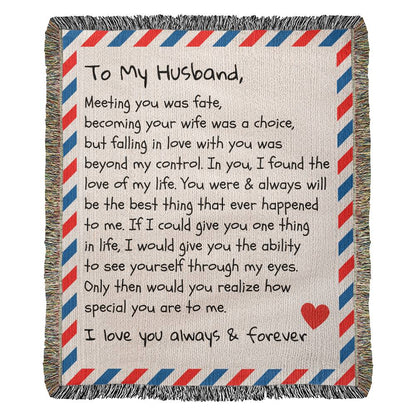 To My Husband,
Meeting you was fate,
becoming your wife was a choice,
but falling in love with you was
beyond my control. In you, I found the
love of my life. You were & always will
be the best thing that ever happened
to me. If I could give you one thing
in life, I would give you the ability
to see yourself through my eyes.
Only then would you realize how
special you are to me.
I love you always & forever